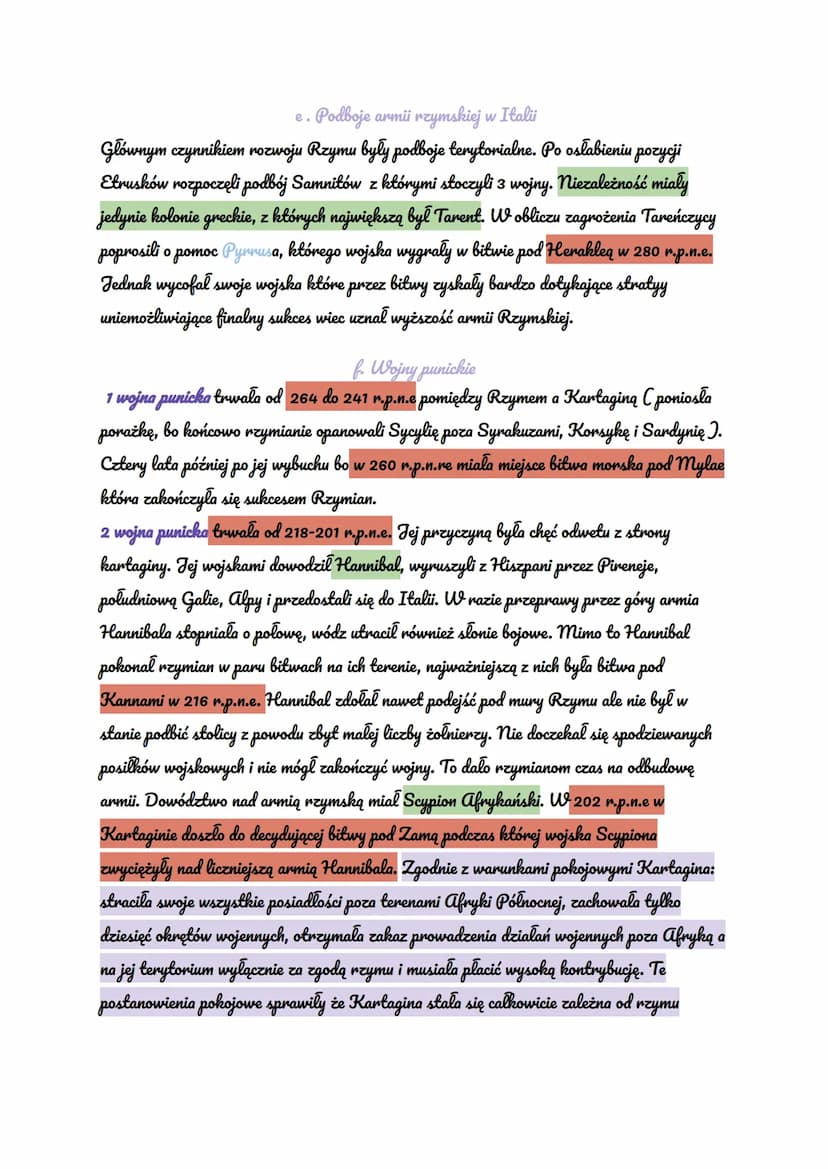 e . Podboje armii rzymskiej w Italii
Głównym czynnikiem rozwoju Rzymu były podboje terytorialne. Po osłabieniu pozycji
Etrusków rozpoczęli podbój Samnitów z którymi stoczyli 3 wojny. Niezależność miały
jedynie kolonie greckie, z których największą był Tarent. W obliczu zagrożenia Tareńczycy
poprosili o pomoc Pyrrusa, którego wojska wygrały w bitwie pod Herakleą w 280 r.p.n.e.
Jednak wycofał swoje wojska które przez bitwy zyskały bardzo dotykające stratyy
uniemożliwiające finalny sukces wiec uznał wyższość armii Rzymskiej.
f. Wojny punickie
1 wojna punicka trwała od 264 do 241 r.p.n.e pomiędzy Rzymem a Kartaginą ( poniosła
porażkę, bo końcowo rzymianie opanowali Sycylię poza Syrakuzami, Korsykę i Sardynię ).
Cztery lata później po jej wybuchu bo w 260 r.p.n.re miała miejsce bitwa morska pod Mylae
która zakończyła się sukcesem Rzymian.
2 wojna punicka trwała od 218-201 r.p.n.e. Jej przyczyną była chęć odwetu z strony
kartaginy. Jej wojskami dowodził Hannibal, wyruszyli z Hiszpani przez Pireneje,
południową Galie, Alpy i przedostali się do Italii. W razie przeprawy przez góry armia
Hannibala stopniała o połowę, wódz utracił również słonie bojowe. Mimo to Hannibal
pokonał rzymian w paru bitwach na ich terenie, najważniejszą z nich była bitwa pod
Kannami w 216 r.p.n.e. Hannibal zdołał nawet podejść pod mury Rzymu ale nie był w
stanie podbić stolicy z powodu zbyt małej liczby żołnierzy. Nie doczekał się spodziewanych
posiłków wojskowych i nie mógł zakończyć wojny. To dało rzymianom czas na odbudowę
armii. Dowództwo nad armią rzymską miał Scypion Afrykański. W 202 r.p.n.e w
Kartaginie doszło do decydującej bitwy pod Zamą podczas której wojska Scypiona
zwyciężyły nad liczniejszą armią Hannibala. Zgodnie z warunkami pokojowymi Kartagina:
straciła swoje wszystkie posiadłości poza terenami Afryki Północnej, zachowała tylko
dziesięć okrętów wojennych, otrzymała zakaz prowadzenia działań wojennych poza Afryką a
na jej terytorium wyłącznie za zgodą rzymu i musiała płacić wysoką kontrybucję. Te
postanowienia pokojowe sprawiły że Kartagina stała się całkowicie zależna od rzymu